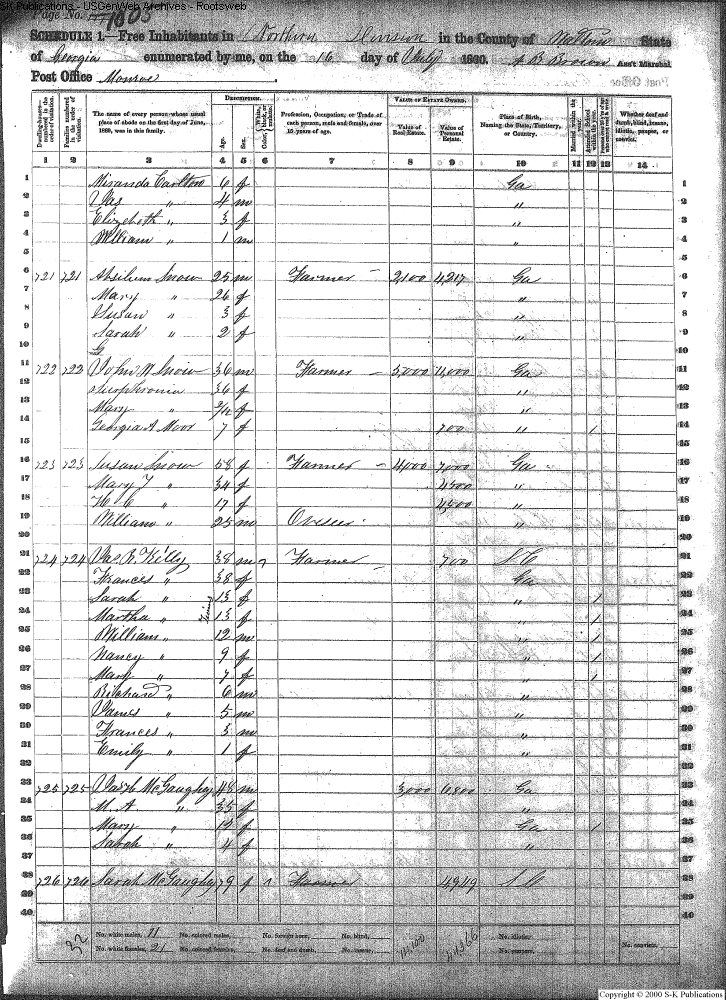 SK Publications - USGenWeb Archives - Rootsweb
Page No. 1805
SCHEDULE 1.—Free Inhabitants in Northern Division in the County of Walton State
of Georgia enumerated by me, on the 16 day of July 1860. A B Brown Ass't Marshal
Post Office Monroe
Dwelling-houses—numbered in the order of visitation.
Families numbered in the order of visitation.
The name of every person whose usual place of abode on the first day of June, 1860, was in this family.
DESCRIPTION.
Age.
Sex.
Color,
Profession, Occupation, or Trade of each person, male and female, over 15 years of age.
VALUE OF ESTATE OWNED.
Value of Real Estate.
Value of Personal Estate.
Place of Birth, Naming the State, Territory, or Country.
Married within the year.
Attended School within the year.
Whether deaf and dumb, blind, insane, idiotic, pauper, or convict.
1 2 3 4 5 6 7 8 9 10 11 12 13 14
1 Miranda Carlton 6 f Ga 1
2 Jas " 4 m " 2
3 Elizebeth " 3 f " 3
4 William " 1 m " 4
5 5
6 721 721 Absilum Snow 25 m Farmer 2,100 4,217 Ga 6
7 Mary " 26 f " 7
8 Susan " 3 f " 8
9 Sarah " 2 f " 9
10 G 10
11 722 722 John W Snow 36 m Farmer 5,000 11,000 Ga 11
12 36 f " 12
13 Mary " /12 f " 13
14 Georgia A Moor 7 f 700 " 1 14
15 15
16 723 723 Susan Snow 58 f Farmer 4,000 7,000 Ga 16
17 Mary J " 34 f 4,500 " 17
18 " 17 f 4,500 " 18
19 William " 25 m Overseer " 19
20 20
21 724 724 Jas R. Kelly 38 m Farmer 700 N C 21
22 Frances " 38 f Ga 22
23 Sarah " 13 f " 1 23
24 Martha " 13 f " 1 24
25 William " 12 m " 1 25
26 Nancy " 9 f " 1 26
27 Mary " 7 f " 1 27
28 Richard " 6 m " 28
29 James " 5 m " 29
30 Frances " 3 m " 30
31 Emily " 1 f " 31
32 32
33 725 725 McGaughy 48 m 3,000 6,800 Ga 33
34 M. A " 35 f " 34
35 Mary " 12 f Ga 1 35
36 Sarah " 4 f " 36
37 37
38 726 726 Sarah McGaughy 79 f Farmer 4949 38
39 39
40 40
32
No. white males, 11 No. colored males, No. foreign born, No. blind, 14,100 44,366 No. idiotic,
No. white females, 21 No. colored females, No. deaf and dumb, No. insane, No. paupers, No. convicts,
Copyright © 2000 S-K Publications